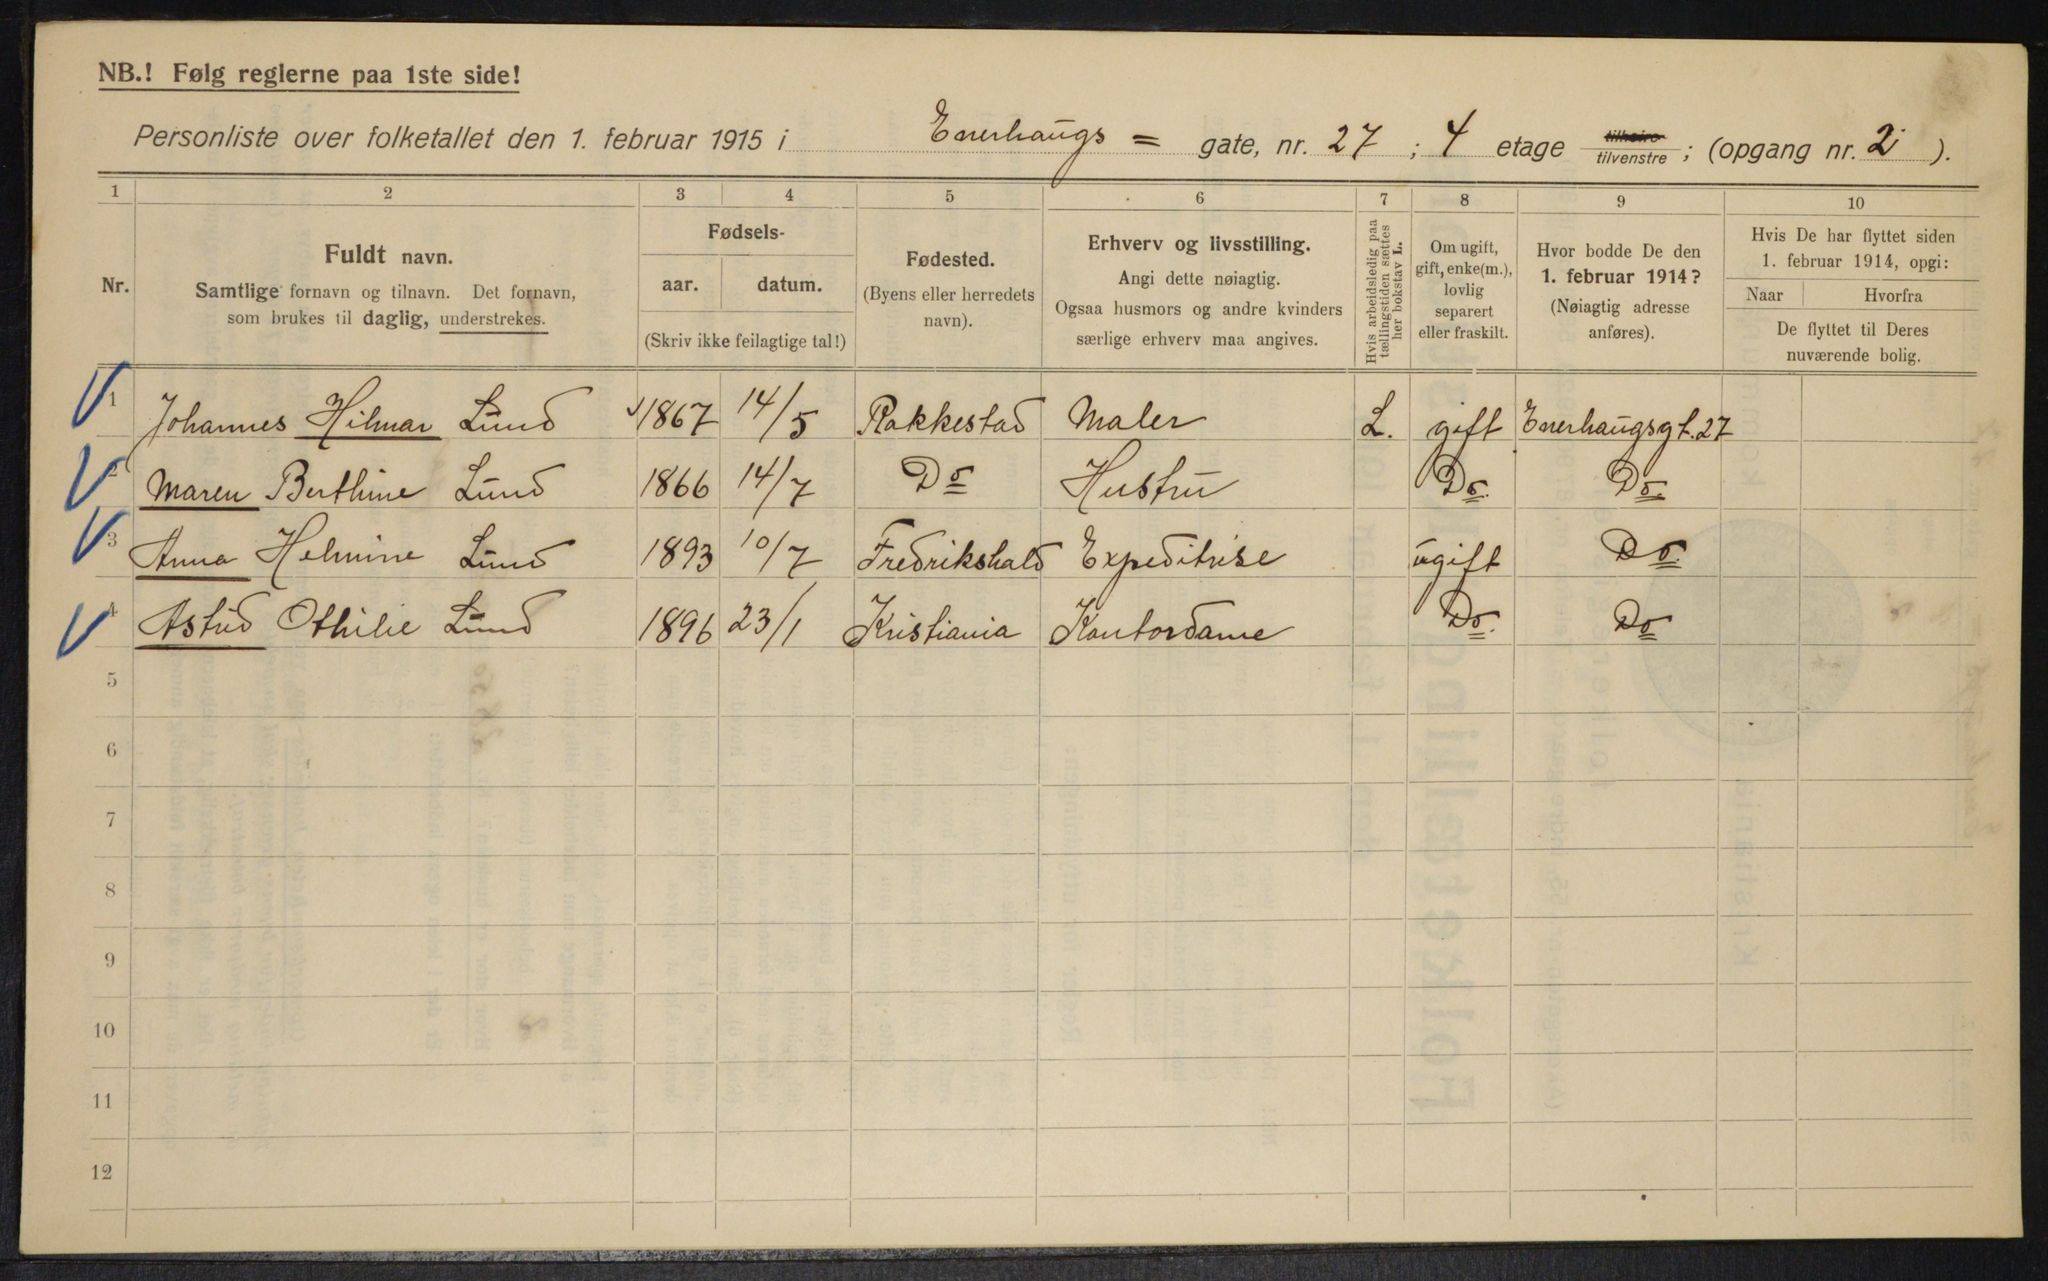 NB.! Følg reglerne paa 1ste side!
Personliste over folketallet den 1. februar 1915 i Enerhaugs= gate, nr. 27 ; 4 etage tilhøire tilvenstre ; (opgang nr. 2 ).
1 2 3 4 5 6 7 8 9 10
Nr.
Fuldt navn.
Samtlige fornavn og tilnavn. Det fornavn,
som brukes til daglig, understrekes.
Fødsels-
aar. datum.
(Skriv ikke feilagtige tal!)
Fødested.
(Byens eller herredets
navn).
Erhverv og livsstilling.
Angi dette nøiagtig.
Ogsaa husmors og andre kvinders
særlige erhverv maa angives.
Hvis arbeidsledig paa
tællingstiden sættes
her bokstav L.
Om ugift,
gift, enke(m.),
lovlig
separert
eller fraskilt.
Hvor bodde De den
1. februar 1914?
(Nøiagtig adresse
anføres).
Hvis De har flyttet siden
1. februar 1914, opgi:
Naar Hvorfra
De flyttet til Deres
nuværende bolig.
1 Johannes Hilmar Lund 1867 14/5 Rakkestad Maler L. gift Enerhaugsgt. 27
2 Maren Berthine Lund 1866 14/7 Do Hustru Do. Do.
3 Anna Helmine Lund 1893 10/7 Fredrikshald Expeditrise ugift Do.
4 Astrid Othilie Lund 1896 23/1 Kristiania Kontordame Do. Do
5
6
7
8
9
10
11
12